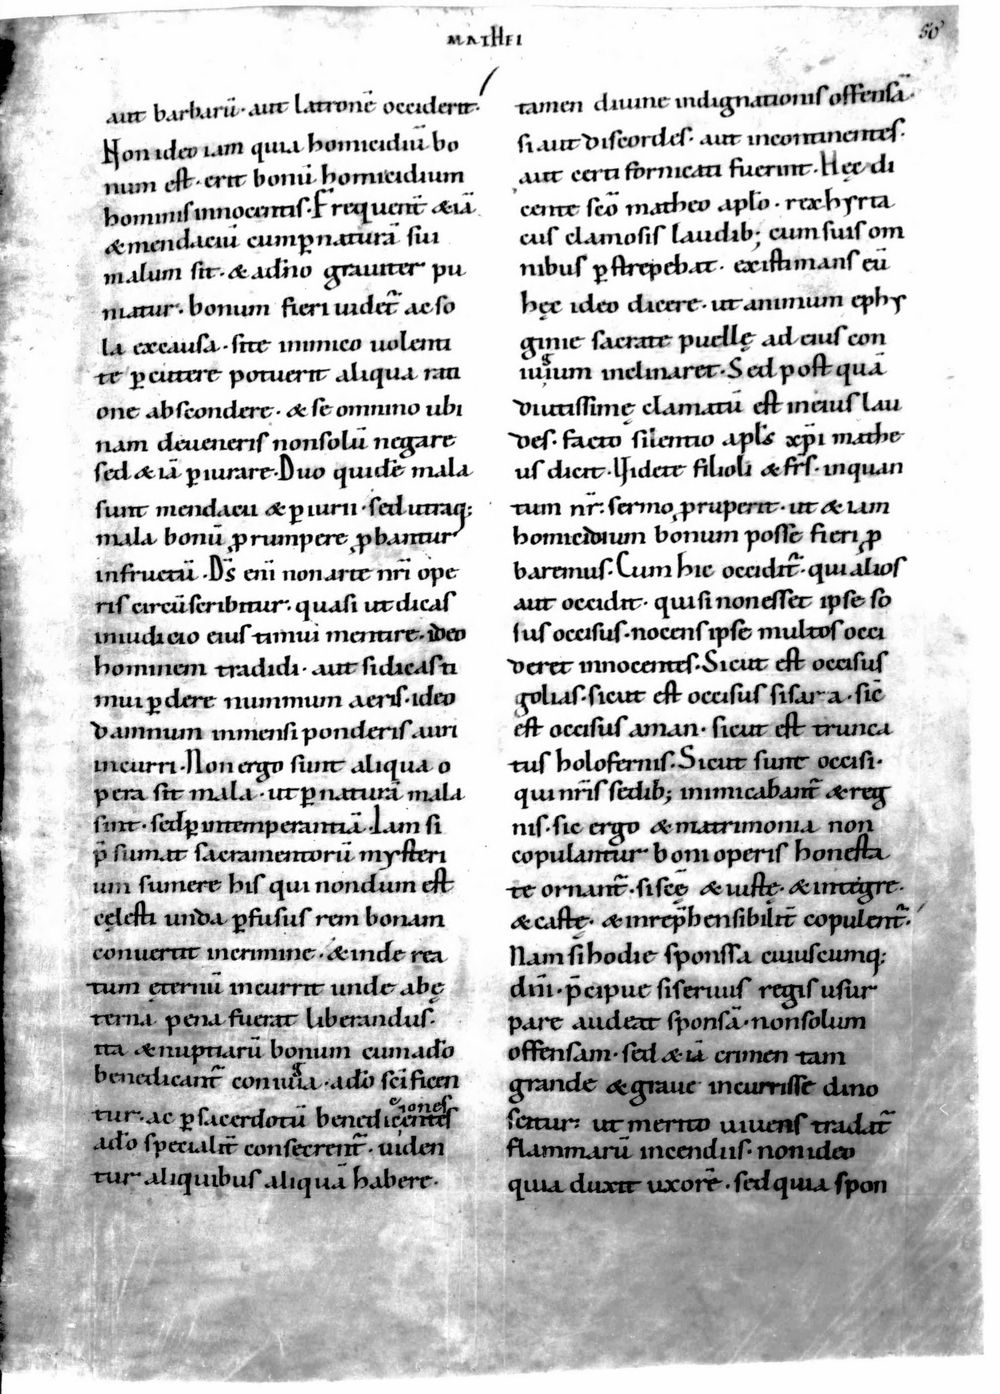 MATHEI
50
aut barbarū· aut latronē occiderit·
Non ideo iam quia homicidiū bo
num est· erit bonū homicidium
hominis innocentis· Frequent̄ & iā
& mendaciū cum ꝑ naturā sui
malum sit· & a dn̄o grauiter pu
niatur· bonum fieri uidet̄ ac so
la ex causa· si te inimico uolenti
te ꝑcutere potuerit aliqua rati
one abscondere· & se omnino ubi
nam deueneris non solū negare
sed & iā ꝑiurare· Duo quidē mala
sunt mendacii & ꝑiurii· sed utraq;
mala bonū ꝓrumpere ꝓbantur
in fructū· Ds̄ eni non arte nr̄i ope
ris circūscribitur· quasi ut dicas
in iudicio eius timui mentire· ideo
hominem tradidi· aut si dicas ti
mui ꝑdere nummum aeris· ideo
damnum inmensi ponderis auri
incurri· Non ergo sunt aliqua o
pera sit mala· ut ꝑ naturā mala
sint· sed ꝑ intemperantiā· Iam si
p̄sumat sacramentorū mysteri
um sumere his qui nondum est
cęlesti unda ꝑfusus rem bonam
conuertit in crimine· & inde rea
tum ęternū incurrit unde ab ę
terna pena fuerat liberandus·
Ita & nuptiarū bonum cum a do
benedicant̄ coniuia· a do sci̅ficen
tur· ac ꝑ sacerdotū benedicentes ciones
a do specialit̄ consecrent̄· uiden
tur aliquibus aliquā habere·
tamen diuine indignationis offensā·
si aut discordes· aut incontinentes·
aut certi fornicati fuerint· Hęc di
cente scō matheo aplō· rex hyrta
cus clamosis laudib; cum suis om
nibus ꝑstrepebat· existimans eū
hęc ideo dicere· ut animum ephy
ginie sacrate puellę ad eius con
iugium inclinaret· Sed post quā
diutissimę clamatū est in eius lau
des· facto silentio apls̄ xp̄i mathe
us dicit· Videte filioli & frs̄· in quan
tum nr̄· sermo ꝓruperit· ut & iam
homicidium bonum posse fieri ꝓ
baremus· Cum hic occidit̄· qui alios
aut occidit· qui si non esset ipse so
lus occisus· nocens ipse multos occi
deret innocentes· Sicut est occisus
golias· sicut est occisus sisara· sic̄
est occisus aman· sicut est trunca
tus holofernis· Sicut sunt occisi·
qui nr̄is sedib; inimicabant̄ & reg
nis· sic ergo & matrimonia non
copulantur boni operis honesta
te ornant̄· si scę & iustę· & integre·
& castę· & inrep̄hensibilit̄ copulent̄·
Nam si hodie sponssa cuiuscumq;
dn̄i· p̄cipue si seruus regis usur
pare audeat sponsā· non solum
offensam· sed & iā crimen tam
grande & graue incurrisse dino
scitur· ut merito uiuens tradat̄
flammarū incendiis· non ideo
quia duxit uxorē· sed quia spon